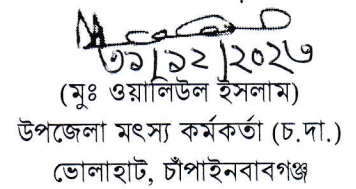 ৩১/১২/২০২৩
(মুঃ ওয়ালিউল ইসলাম)
উপজেলা মৎস্য কর্মকর্তা (চ.দা.)
ভোলাহাট, চাঁপাইনবাবগঞ্জ